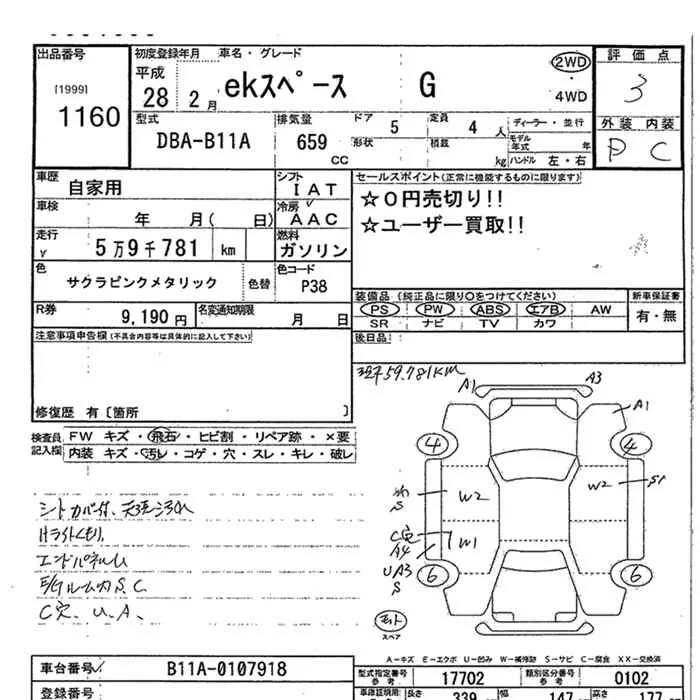 出品番号
[1999]
1160
初度登録年月
平成
28年 2月
車名・グレード
ekスペース G
2WD
4WD
評価点
3
外装 内装
P C
型式
DBA-B11A
排気量
659
cc
ドア
5
形状
定員
4人
積載
kg
ディーラー・並行
モデル年式 年
ハンドル 左・右
車歴
自家用
シフト
IAT
車検
年 月( 日)
冷房
AAC
走行
5万9千781 km
燃料
ガソリン
色
サクラピンクメタリック
色替
色コード
P38
R券
9,190円
名変通知期限
月 日
セールスポイント(正常に機能するものに限ります)
☆0円売切り!!
☆ユーザー買取!!
装備品(純正品に限り○をつけてください)
PS PW ABS エアB AW
SR ナビ TV カワ
新車保証書
有・無
後日品
注意事項申告欄(不具合内容等は具体的に記入して下さい)
修復歴 有〔箇所 〕
検査員記入欄
FW キズ・飛石・ヒビ割・リペア跡・×要
内装 キズ・汚レ・コゲ・穴・スレ・キレ・破レ
59,781KM
A1
A3
A1
4
4
W2
W2
S1
S
C穴
A4
W1
UA3
S
6
6
スペア
シートカバー付、天張汚れ
Hライトくもり
エンドパネルU
E/Gルーム内S、C
C穴、U、A、
A-キズ E-エクボ U-凹み W-補修跡 S-サビ C-腐食 XX-交換済
車台番号
B11A-0107918
型式指定番号
参考
17702
類別区分番号
参考
0102
登録番号
車庫証明用
参考
長さ
339
幅
147
高さ
177